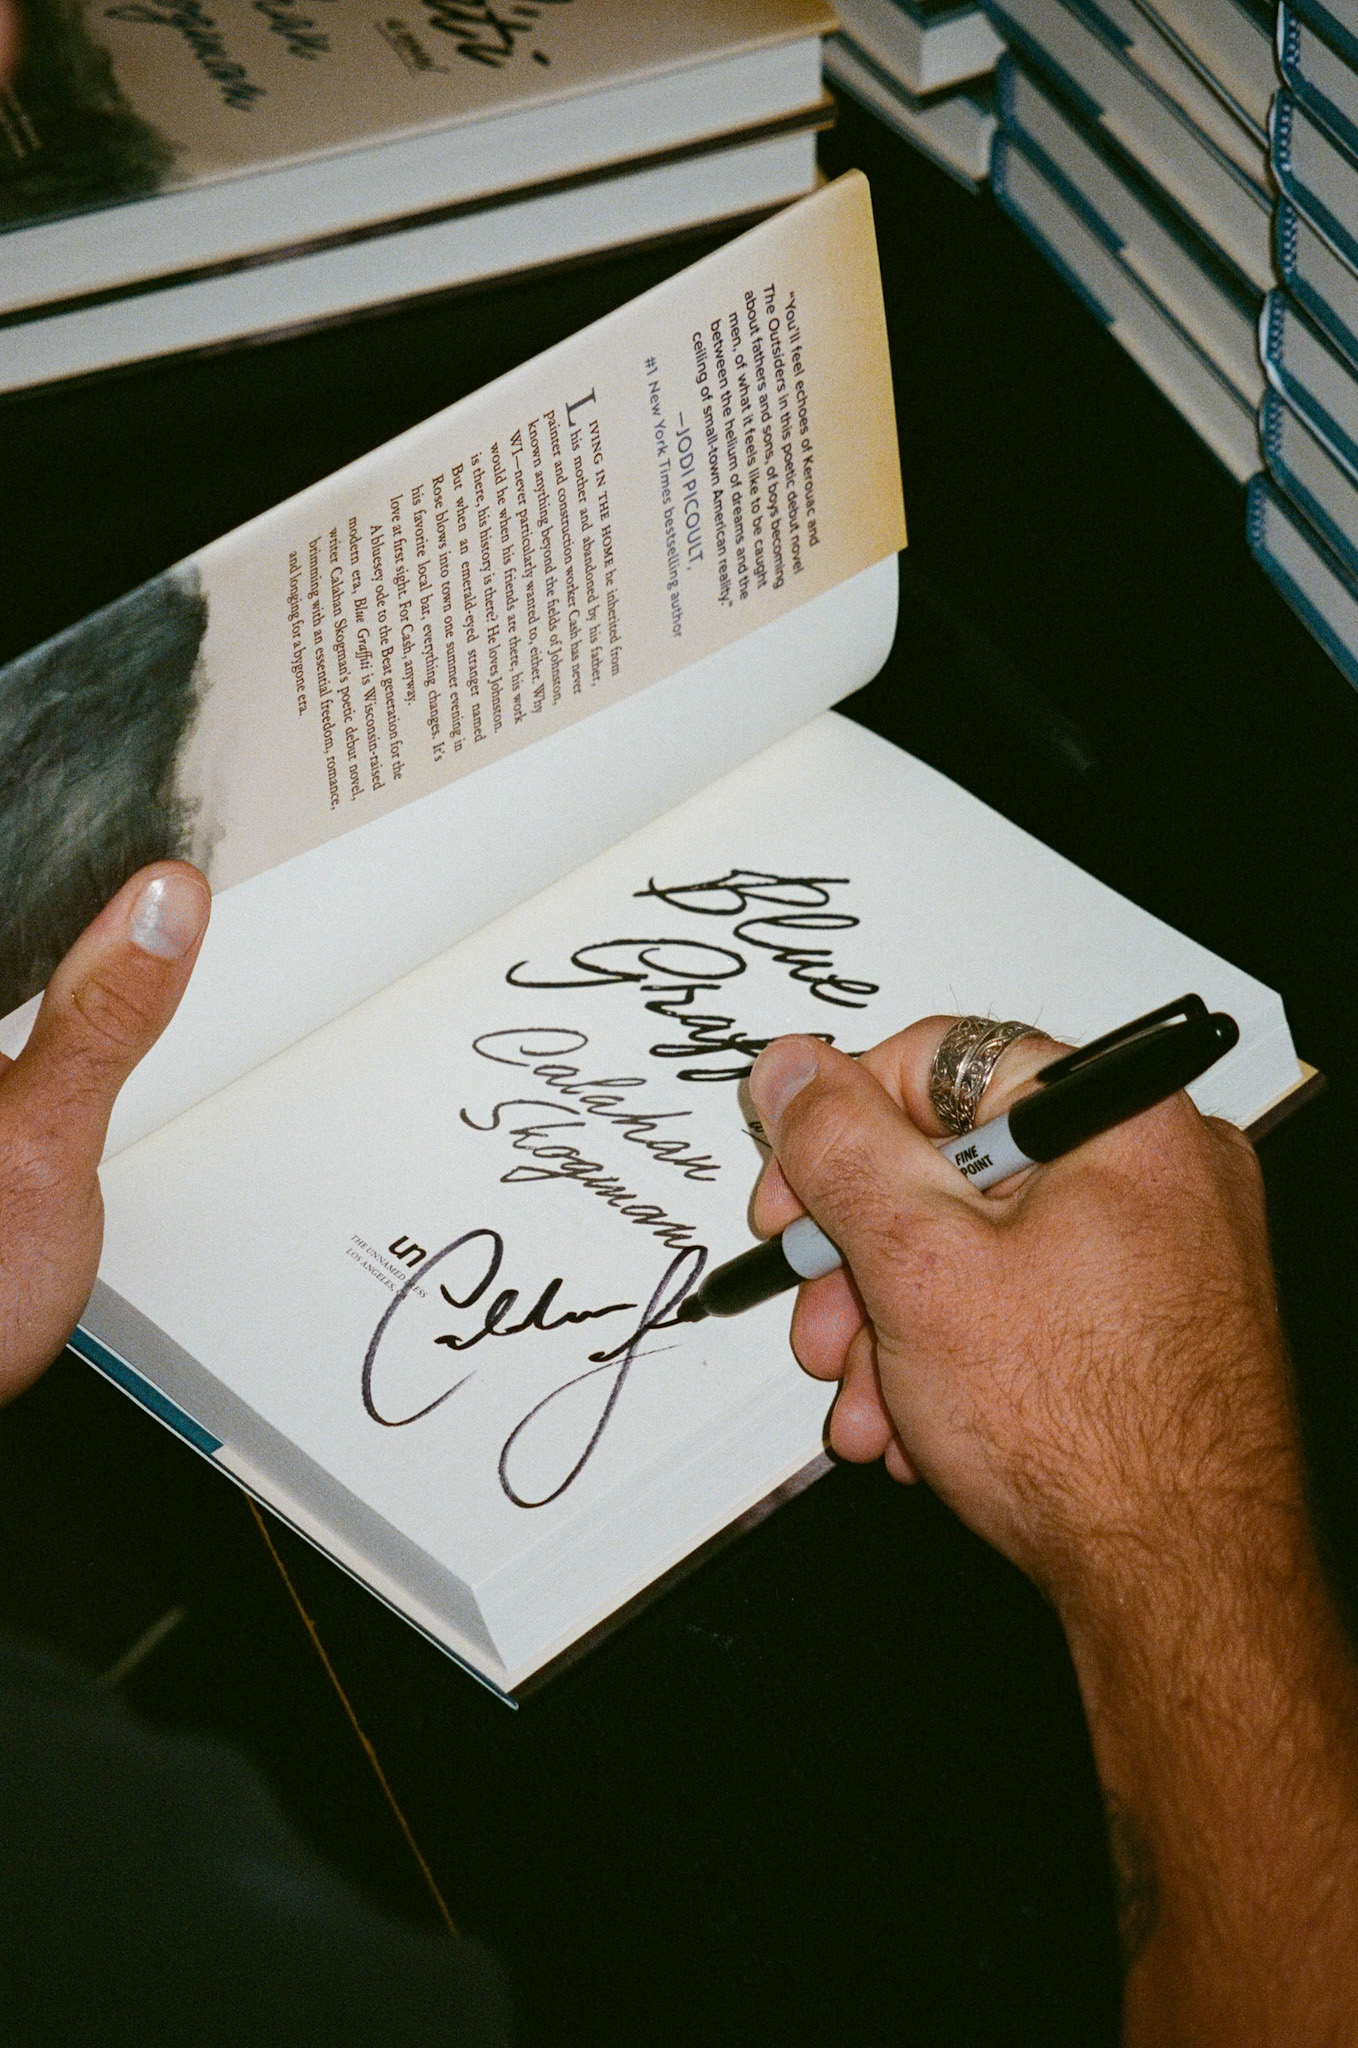 "You'll feel echoes of Kerouac and
The Outsiders in this poetic debut novel
about fathers and sons, of boys becoming
men, of what it feels like to be caught
between the helium of dreams and the
ceiling of small-town American reality."
—JODI PICOULT,
#1 New York Times bestselling author
LIVING IN THE HOME he inherited from
his mother and abandoned by his father,
painter and construction worker Cash has never
known anything beyond the fields of Johnston,
WI—never particularly wanted to, either. Why
would he when his friends are there, his work
is there, his history is there? He loves Johnston.
But when an emerald-eyed stranger named
Rose blows into town one summer evening in
his favorite local bar, everything changes. It's
love at first sight. For Cash, anyway.
A bluesey ode to the Beat generation for the
modern era, Blue Graffiti is Wisconsin-raised
writer Calahan Skogman's poetic debut novel,
brimming with an essential freedom, romance,
and longing for a bygone era.
Blue
Calahan
Skogman
un
THE UNNAMED
LOS ANGELES,
FINE
POINT
a novel